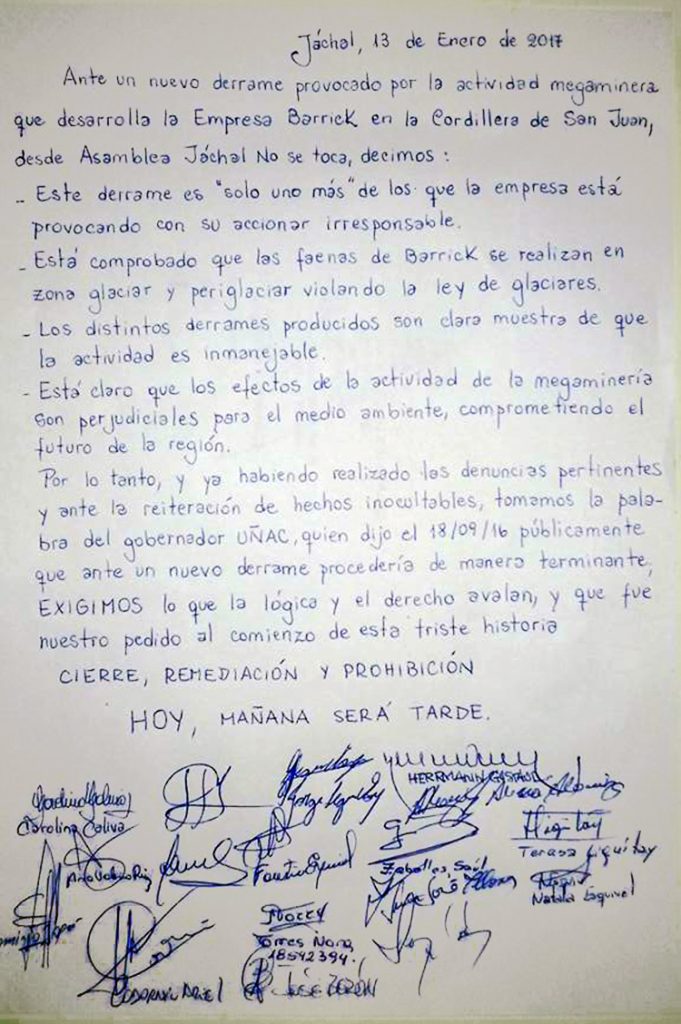 Jáchal, 13 de Enero de 2017
Ante un nuevo derrame provocado por la actividad megaminera
que desarrolla la Empresa Barrick en la Cordillera de San Juan,
desde Asamblea Jáchal No se toca, decimos:
- Este derrame es "solo uno más" de los que la empresa está
provocando con su accionar irresponsable.
- Está comprobado que las faenas de Barrick se realizan en
zona glaciar y periglaciar violando la ley de glaciares.
- Los distintos derrames producidos son clara muestra de que
la actividad es inmanejable.
- Está claro que los efectos de la actividad de la megaminería
son perjudiciales para el medio ambiente, comprometiendo el
futuro de la región.
Por lo tanto, y ya habiendo realizado las denuncias pertinentes
y ante la reiteración de hechos inocultables, tomamos la pala-
bra del gobernador UÑAC, quien dijo el 18/09/16 públicamente
que ante un nuevo derrame procedería de manera terminante,
EXIGIMOS lo que la lógica y el derecho avalan, y que fue
nuestro pedido al comienzo de esta triste historia
CIERRE, REMEDIACIÓN Y PROHIBICIÓN
HOY, MAÑANA SERÁ TARDE.
HERRMANN
Carolina Caliva
Teresa
Zeballos, Saúl
Natalia Esquivel
Torres Nora
18592394.
José Zerón